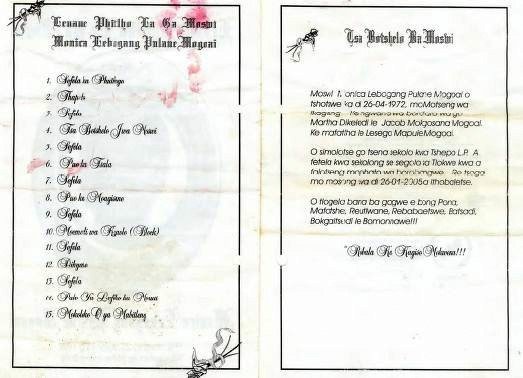 Lenane Phitlho La Ga Moswi
Monica Lebogang Pulane Mogoai
1. Sefela ka Phuthego
2. Thapelo
3. Sefela
4. Tsa Botshelo Jwa Moswi
5. Sefela
6. Puo ka Tsala
7. Sefela
8. Puo ka Moagisane
9. Sefela
10. (Block)
11. Sefela
12.
13. Sefela
14. Puo Ya Lefoko ka Moruti
15. Mokoloko O ya Mabitleng
Tsa Botshelo Ba Moswi
Moswi Monica Lebogang Pulane Mogoai o
tshotswe ka di 26-04-1972, mo Motseng wa
Ikageng. Ke ngwana wa bo ga
Martha Dikeledi le Jacob Mokgosana Mogoai.
Ke mafatlha le Lesego Mapule Mogoai.
O simolotse go tsena sekolo kwa Tshepo L.P. A
fetela kwa sekolong se segolo sa Tlokwe kwa a
mophato wa Re tsoga
mo mosong wa di 26-01-2005 a ithobaletse.
O tlogela bana ba gagwe e bong Pona,
Mafatshe, Reutlwane, Rebabaetswe, Batsadi,
Bokgaitsadi le Bomonnawe!!!
"Robala Ka Kagiso Mokwena!!!